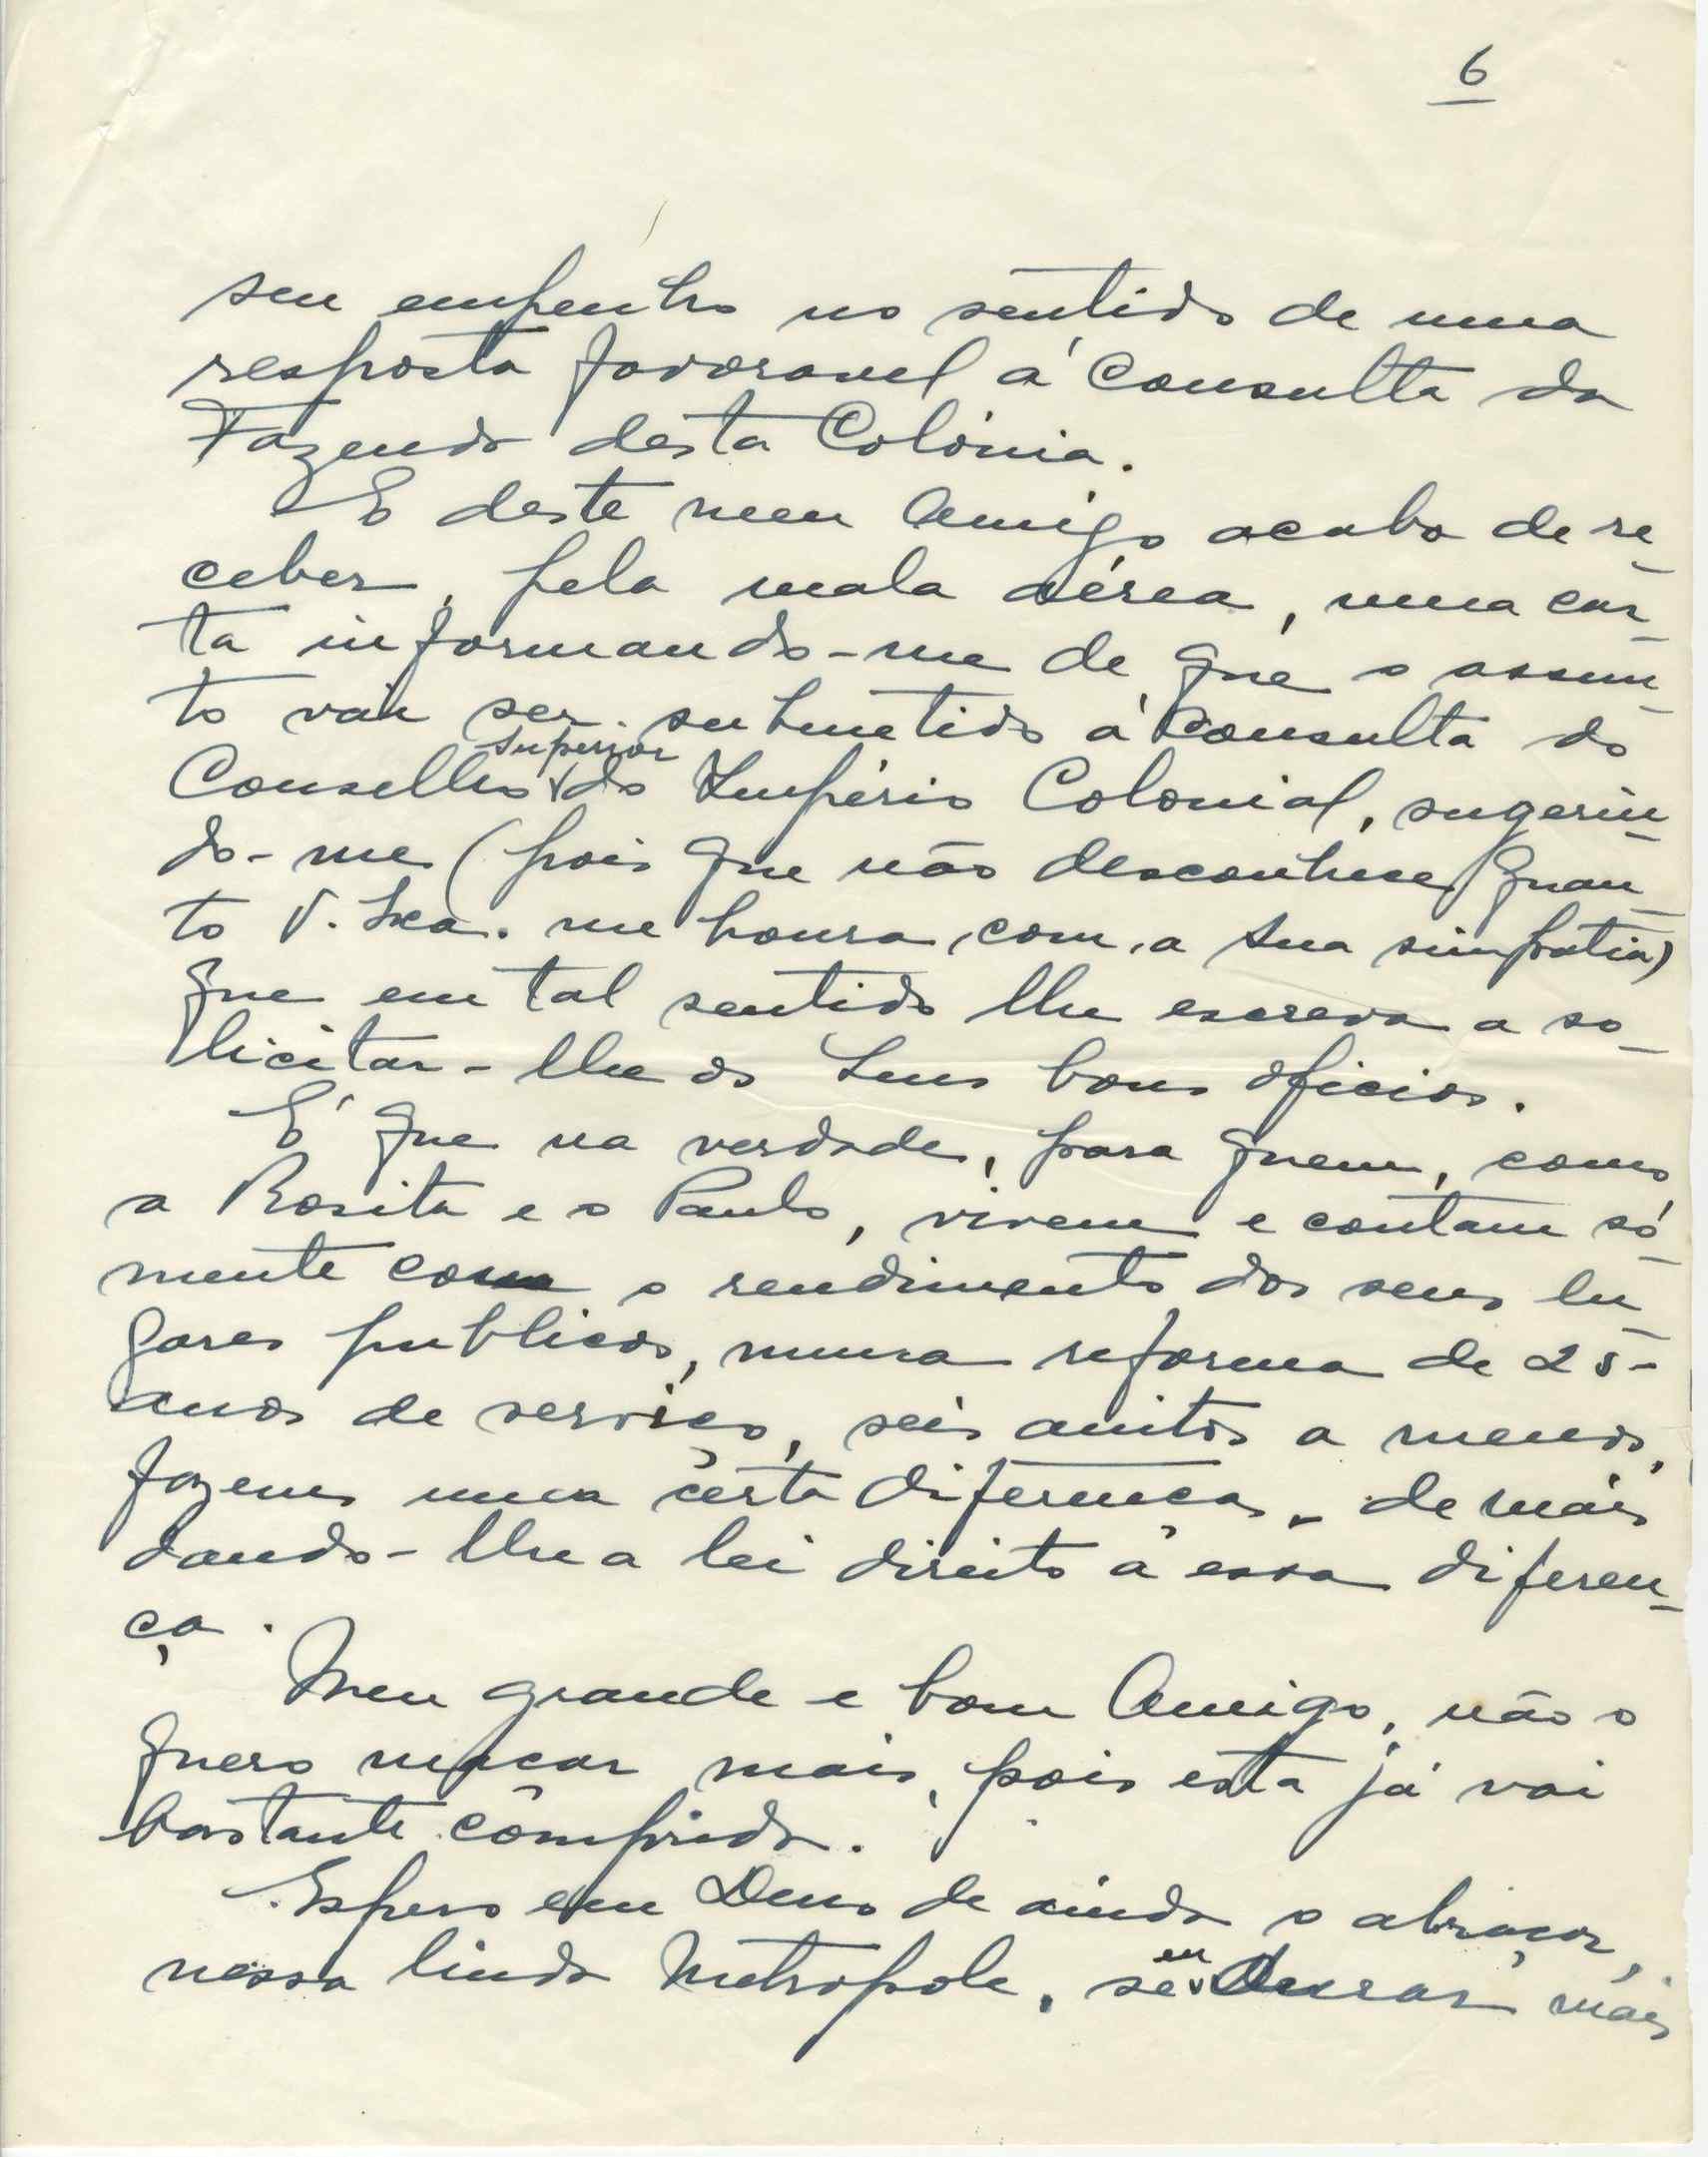 6
seu empenho no sentido de uma
resposta favoravel á consulta da
Fazenda desta Colónia.
E deste meu Amigo acabo de re-
ceber, pela mala aérea, uma car-
ta informando-me de que o assun-
to vai ser submetido á consulta do
Conselho superior do Império Colonial, sugerin-
do-me (pois que não desconhece quan-
to V. Exa. me honra com a Sua simpatia)
que em tal sentido lhe escreva a so-
licitar-lhe os Seus bons oficios.
É que na verdade, para quem, como
a Rosita e o Paulo, vivem e contam só-
mente com o rendimento dos seus lu-
gares publicos, numa reforma de 25-
anos de serviço, seis anitos a menos,
fazem uma certa diferença, de mais
dando-lhe a lei direito a essa diferen-
ça.
Meu grande e bom Amigo, não o
quero maçar mais, pois esta já vai
bastante comprida.
Espero em Deus de ainda o abraçar,
nessa linda Metropole, se eu durar mais